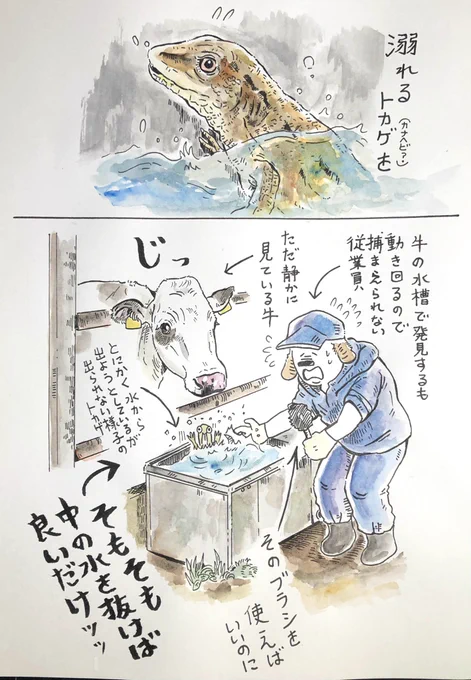 溺れる
(カナヘビ？)
トカゲを
牛の水槽で発見するも
動き回るので
捕まえられない
従業員
ただ静かに
見ている牛
じっ
とにかく水から
出ようとしているが
出られない様子の
トカゲ
そもそも
中の水を抜けば
良いだけッッ
そのブラシを
使えば
いいのに